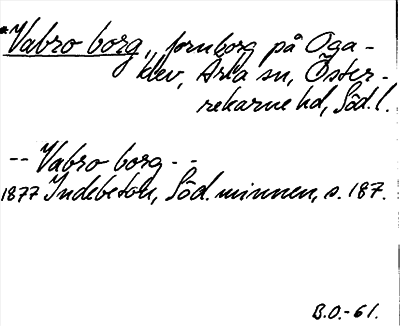 *Vabro borg, fornborg på Oga-
klev, Ärla sn, Öster-
rekarne hd, Söd. l.
-- Vabro borg --
1877 Indebetou, Söd. minnen, s. 187.
B.O.-61.